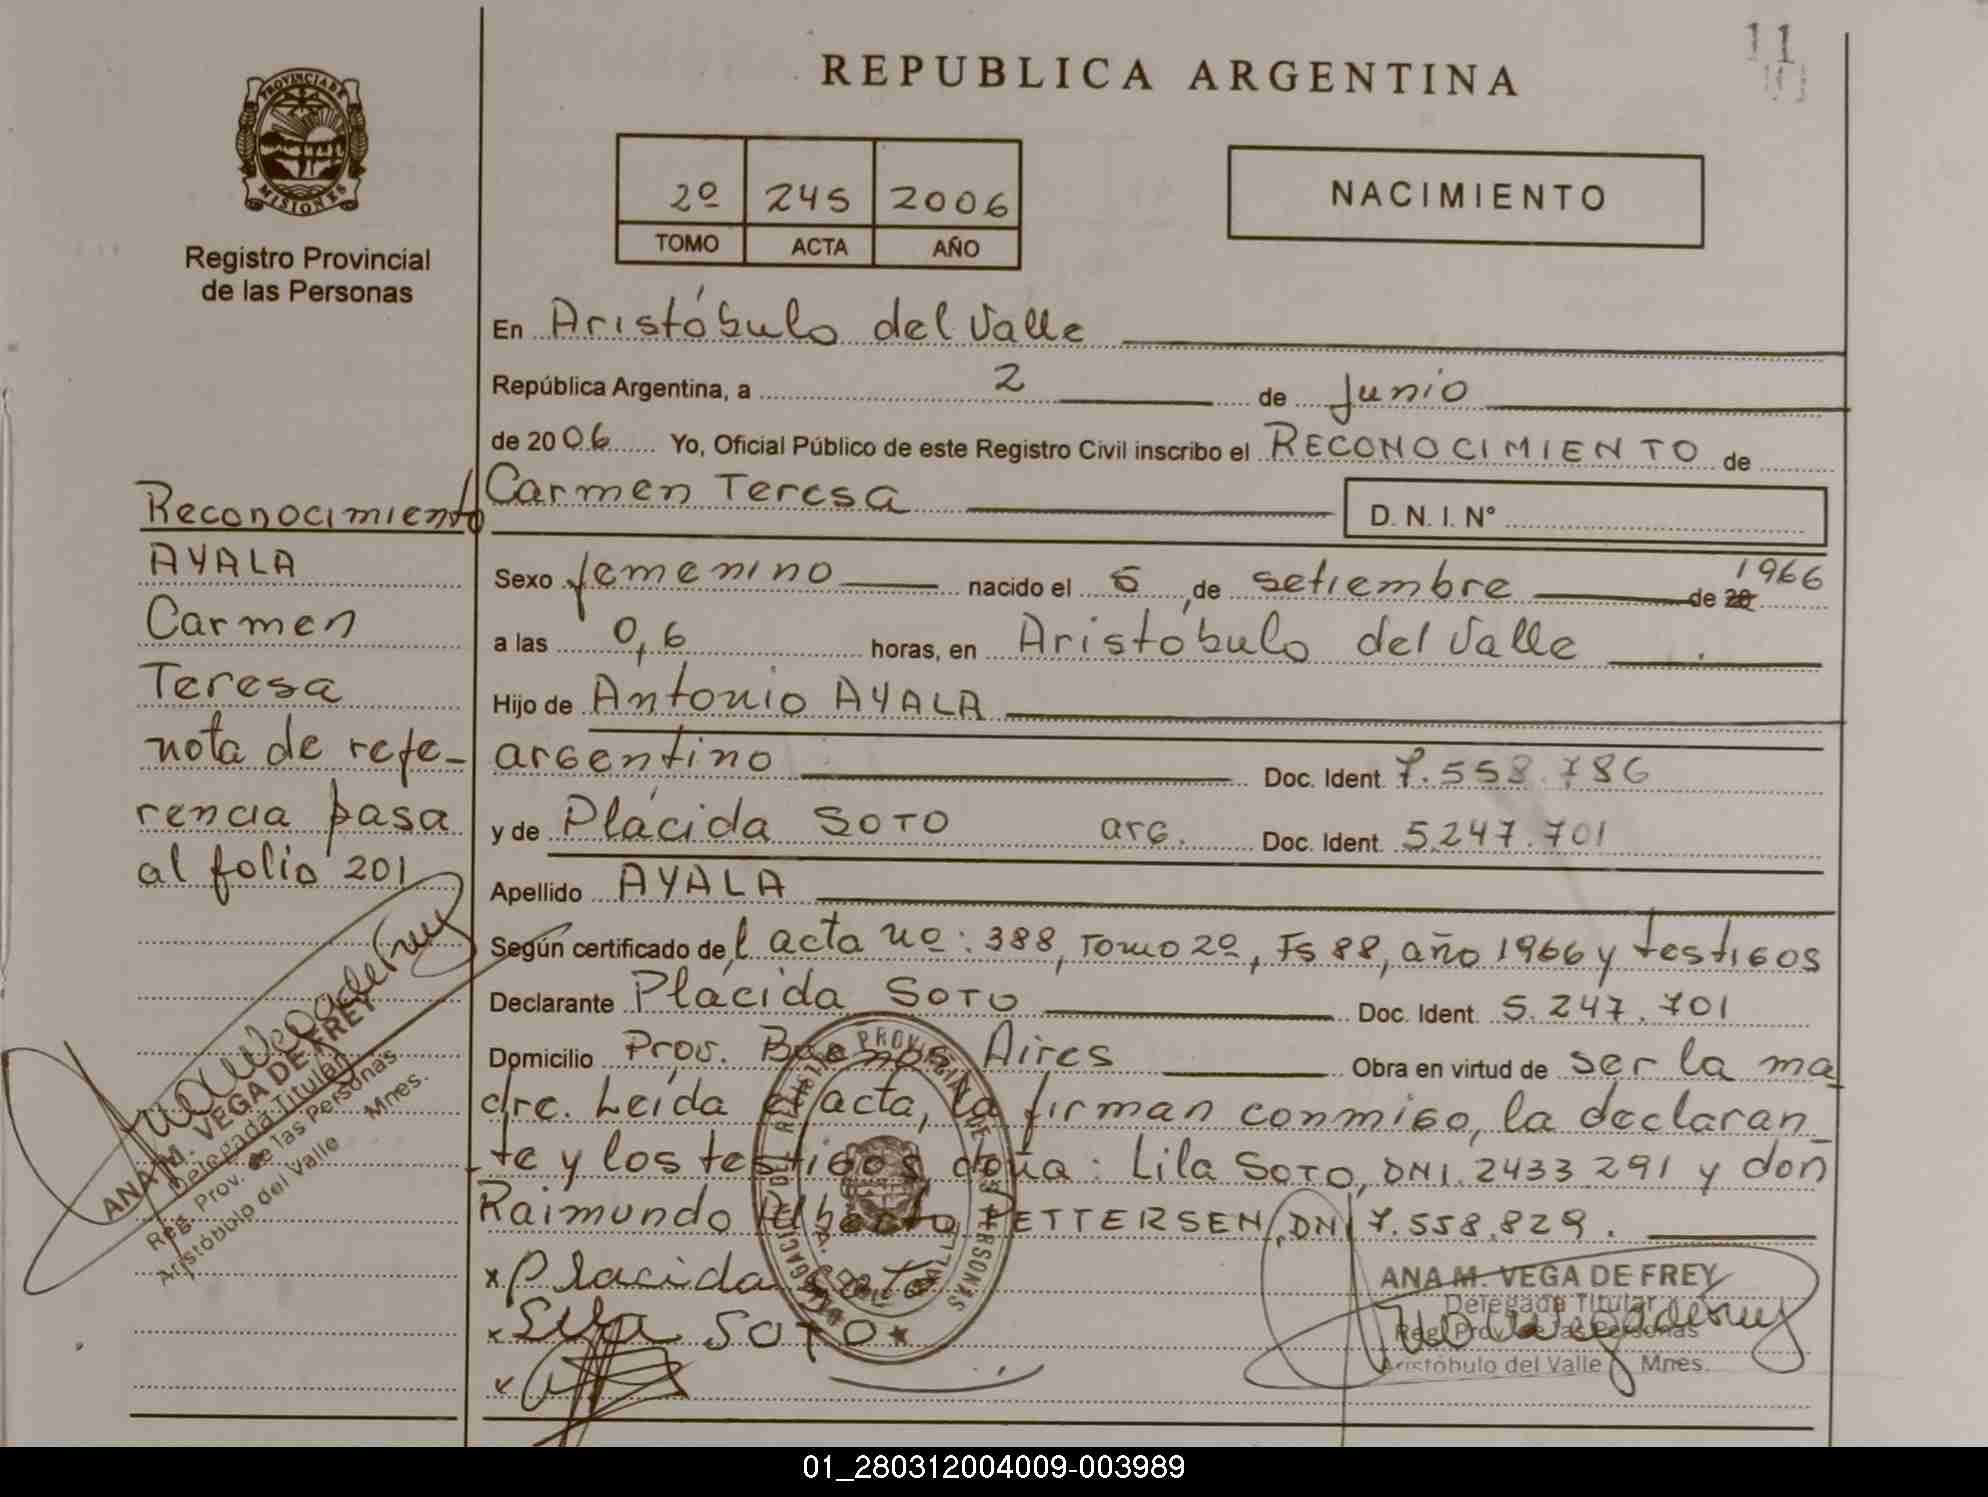 11
REPUBLICA ARGENTINA
PROVINCIA DE
MISIONES
Registro Provincial
de las Personas
2º 245 2006
TOMO ACTA AÑO
NACIMIENTO
En Aristóbulo del Valle
República Argentina, a 2 de Junio
de 2006 Yo, Oficial Público de este Registro Civil inscribo el RECONOCIMIENTO de
Carmen Teresa D.N.I. N°
Sexo femenino nacido el 6 de setiembre de 20 1966
a las 0,6 horas, en Aristóbulo del Valle
Hijo de Antonio AYALA
argentino Doc. Ident. 7.558.786
y de Plácida SOTO arg. Doc. Ident. 5.247.701
Apellido AYALA
Según certificado del acta nº: 388, Tomo 2º, Fs 88, año 1966 y testigos
Declarante Plácida SOTO Doc. Ident. 5.247.701
Domicilio Prov. Buenos Aires Obra en virtud de ser la ma
dre. Leída el acta, la firman conmigo, la declaran_
_te y los testigos doña: Lila SOTO, DNI. 2433 291 y don
Raimundo Alberto PETTERSEN, DNI 7.558.829.
x Placida soto
x Lila SOTO
x
Reconocimiento
AYALA
Carmen
Teresa
nota de refe-
rencia pasa
al folio 201
ANA M. VEGA DE FREY
Delegada Titular
Reg. Prov. de las Personas
Aristóbulo del Valle Mnes.
ANA M. VEGA DE FREY
Delegada Titular
Reg. Prov. de las Personas
Aristóbulo del Valle Mnes.
01_280312004009-003989